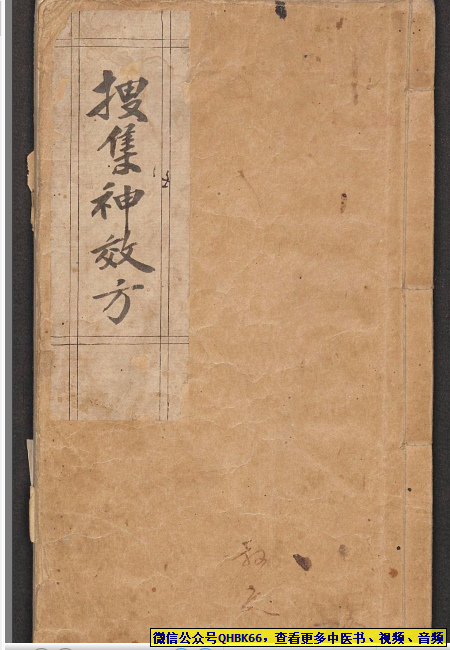 搜集神效方
微信公众号QHBK66，查看更多中医书、视频、音频